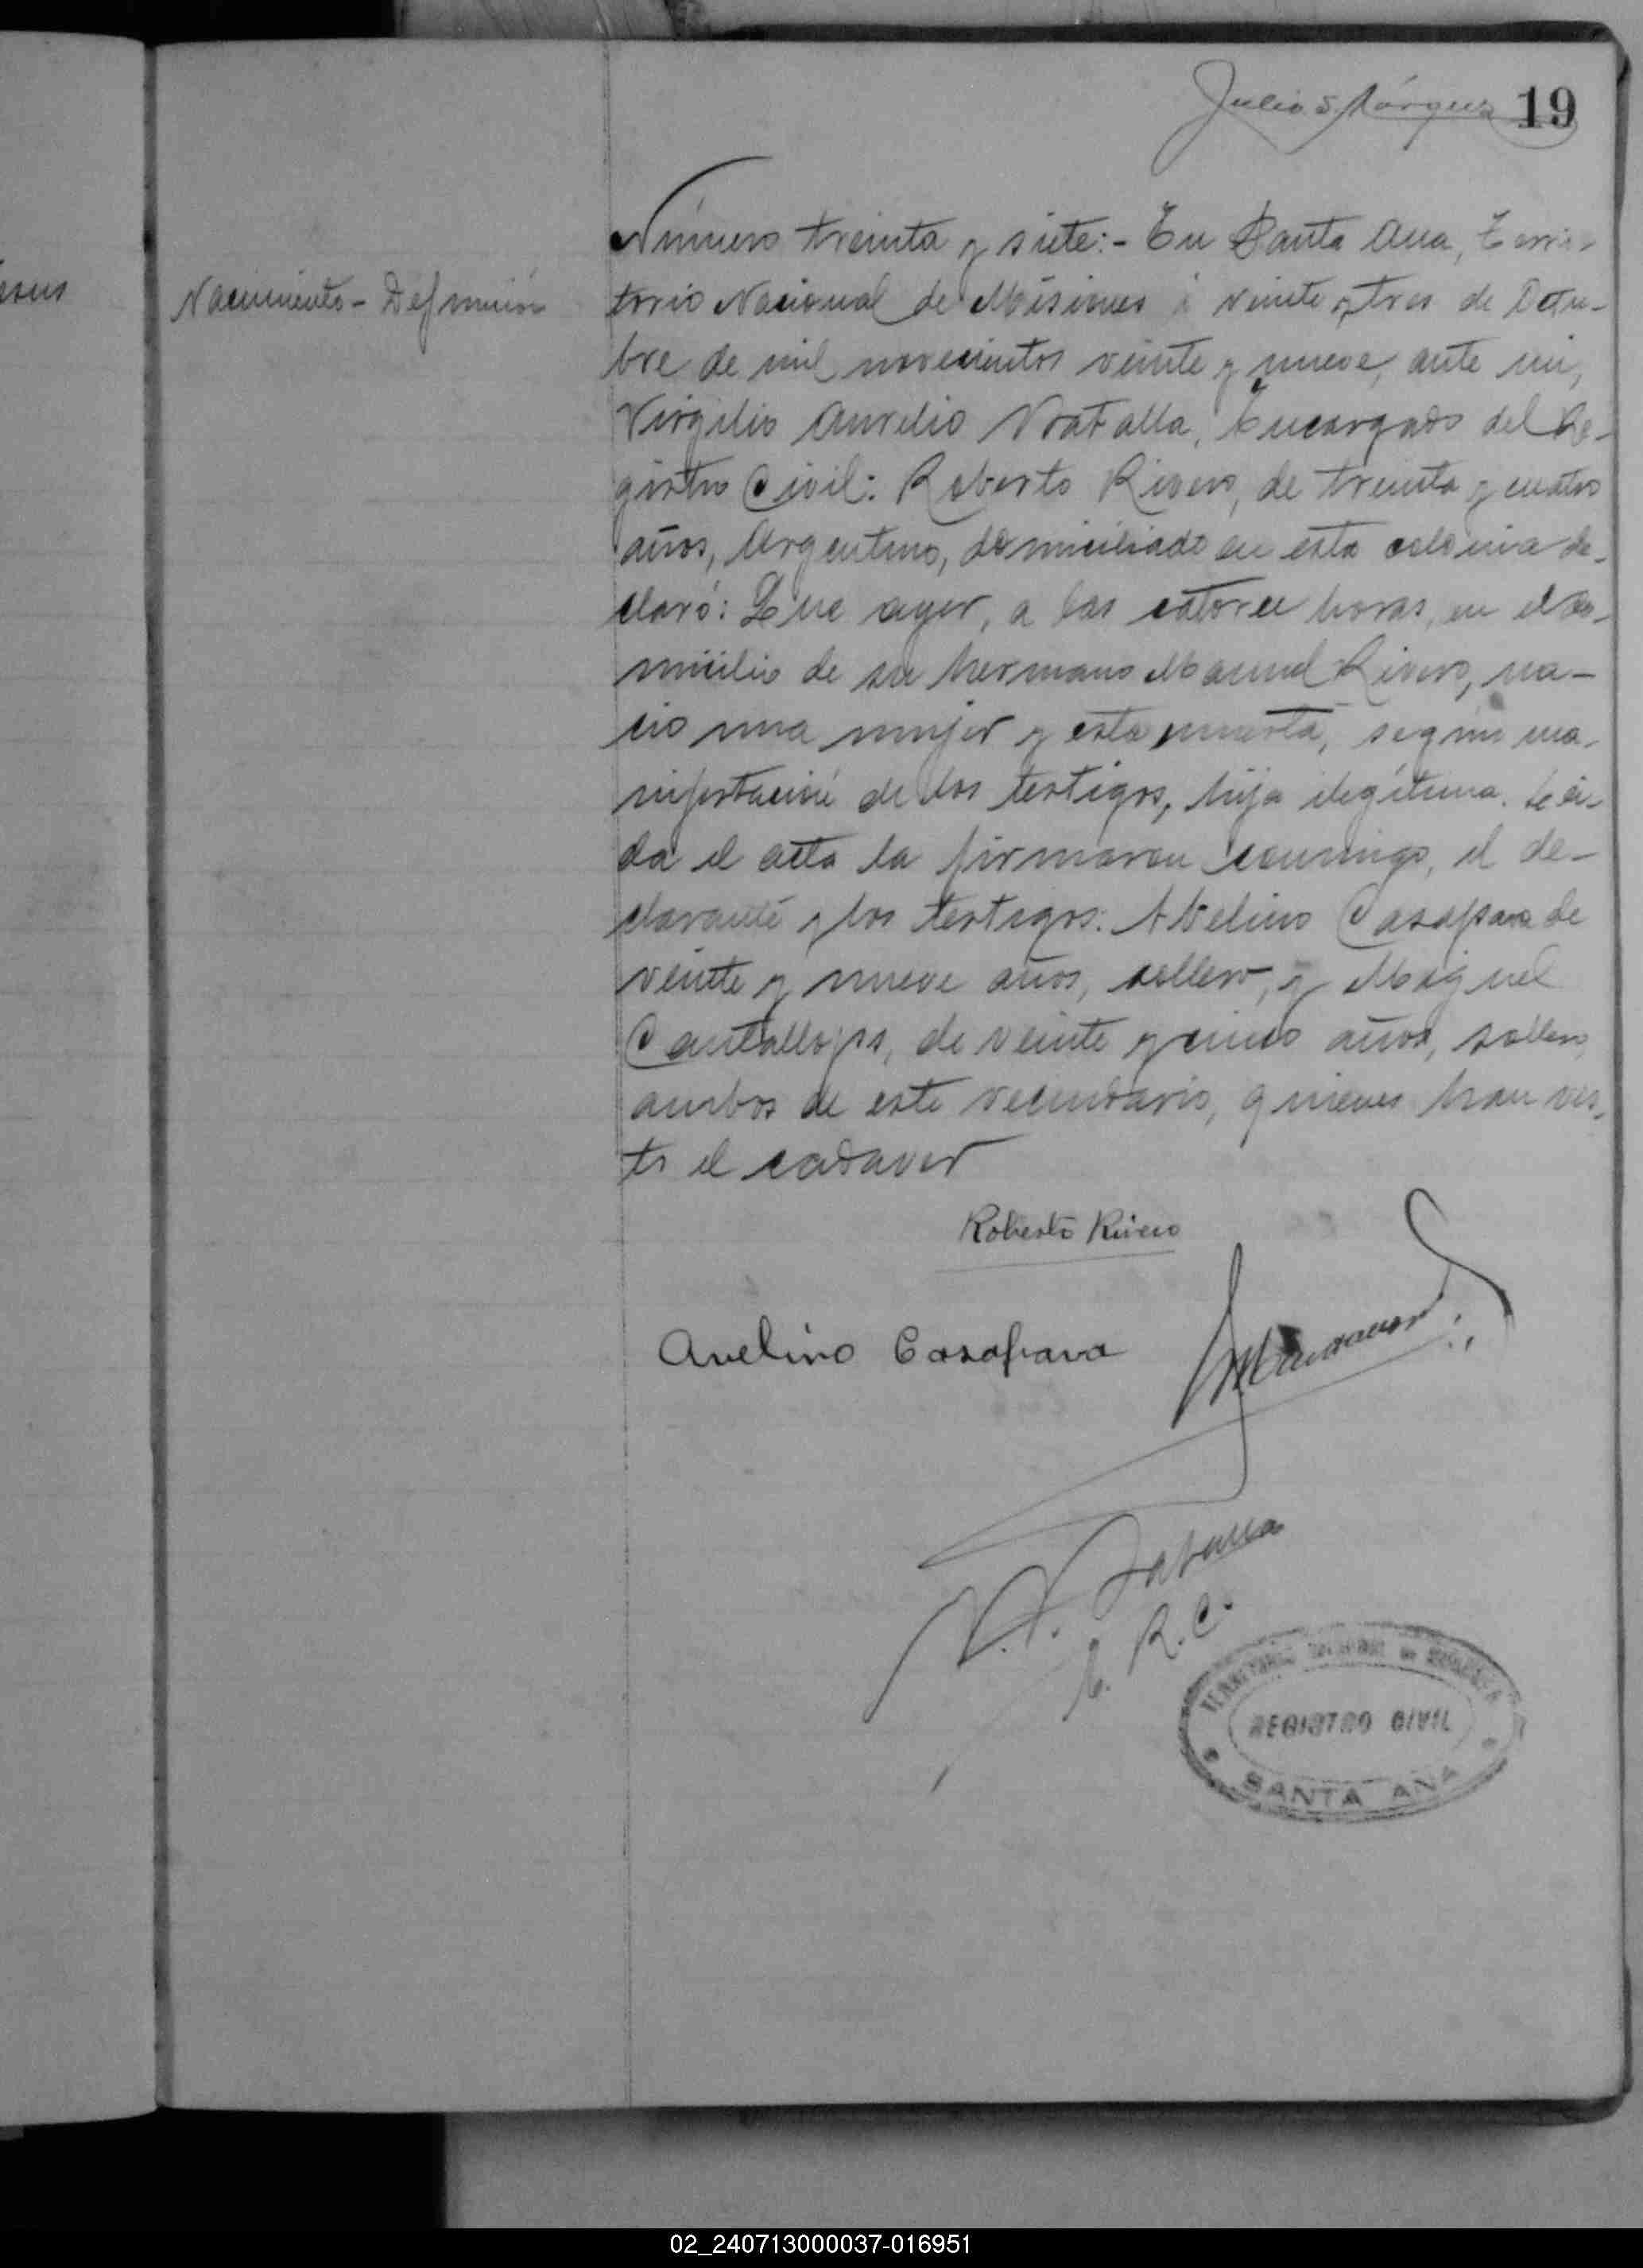 Julio S. Márquez 19
esus
Nacimiento - Defunción
Número treinta y siete:- En Santa Ana, Terri-
torio Nacional de Misiones á veinte y tres de Octu-
bre de mil novecientos veinte y nueve, ante mi,
Virgilio Aurelio Encargado del Re-
gistro Civil: Roberto Rivero, de treinta y cuatro
años, Argentino, domiciliado en esta colonia de-
claró: Que ayer, a las catorce horas, en el do-
micilio de su hermano Manuel Rivero, na-
cio una mujer y esta muerta, según ma-
nifestación de los testigos, hija ilegítima. Lei-
da el acta la firmaron conmigo, el de-
clarante y los testigos: Avelino Casapava de
veinte y nueve años, soltero, y Miguel
Cantallops, de veinte y cinco años, soltero,
ambos de este vecindario, quienes han vis-
to el cadaver
Roberto Rivero
Avelino Casapava
E. R. C.
TERRITORIO NACIONAL DE MISIONES
REGISTRO CIVIL
SANTA ANA
02_240713000037-016951